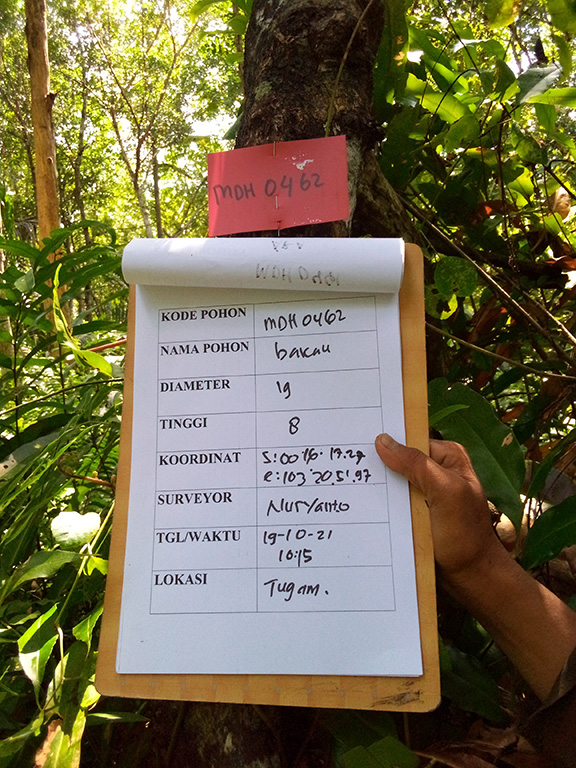 MDH 0462
KODE POHON MDH 0462
NAMA POHON bakau
DIAMETER 19
TINGGI 8
KOORDINAT S:00°16'.17.29
e:103°20.51.97
SURVEYOR Nuryanto
TGL/WAKTU 19-10-21
10:15
LOKASI Tugam.